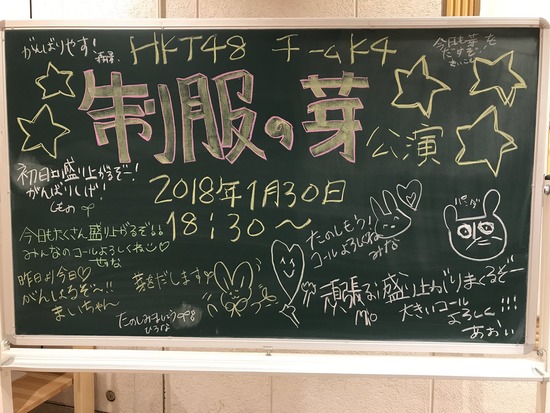 がんばりやす!
HKT48 チームK4
今日も芽を
だすぞ!!
制服の芽
公演
初日 盛り上がるぞー!
がんばりんぱ!
しもの
2018年1月30日
18:30〜
今日もたくさん盛り上がるぞ
みんなのコールよろしくね
せりな
昨日も今日♡
がんしょるぞー!!
まいちゃん
芽をだします
たのしみましょう
ひろな
たのしもう!
コールよろしくね
みな
パンダ
頑張る!盛り上がりまくるぞー
大きいコール
よろしく!!!
あおい
Mio